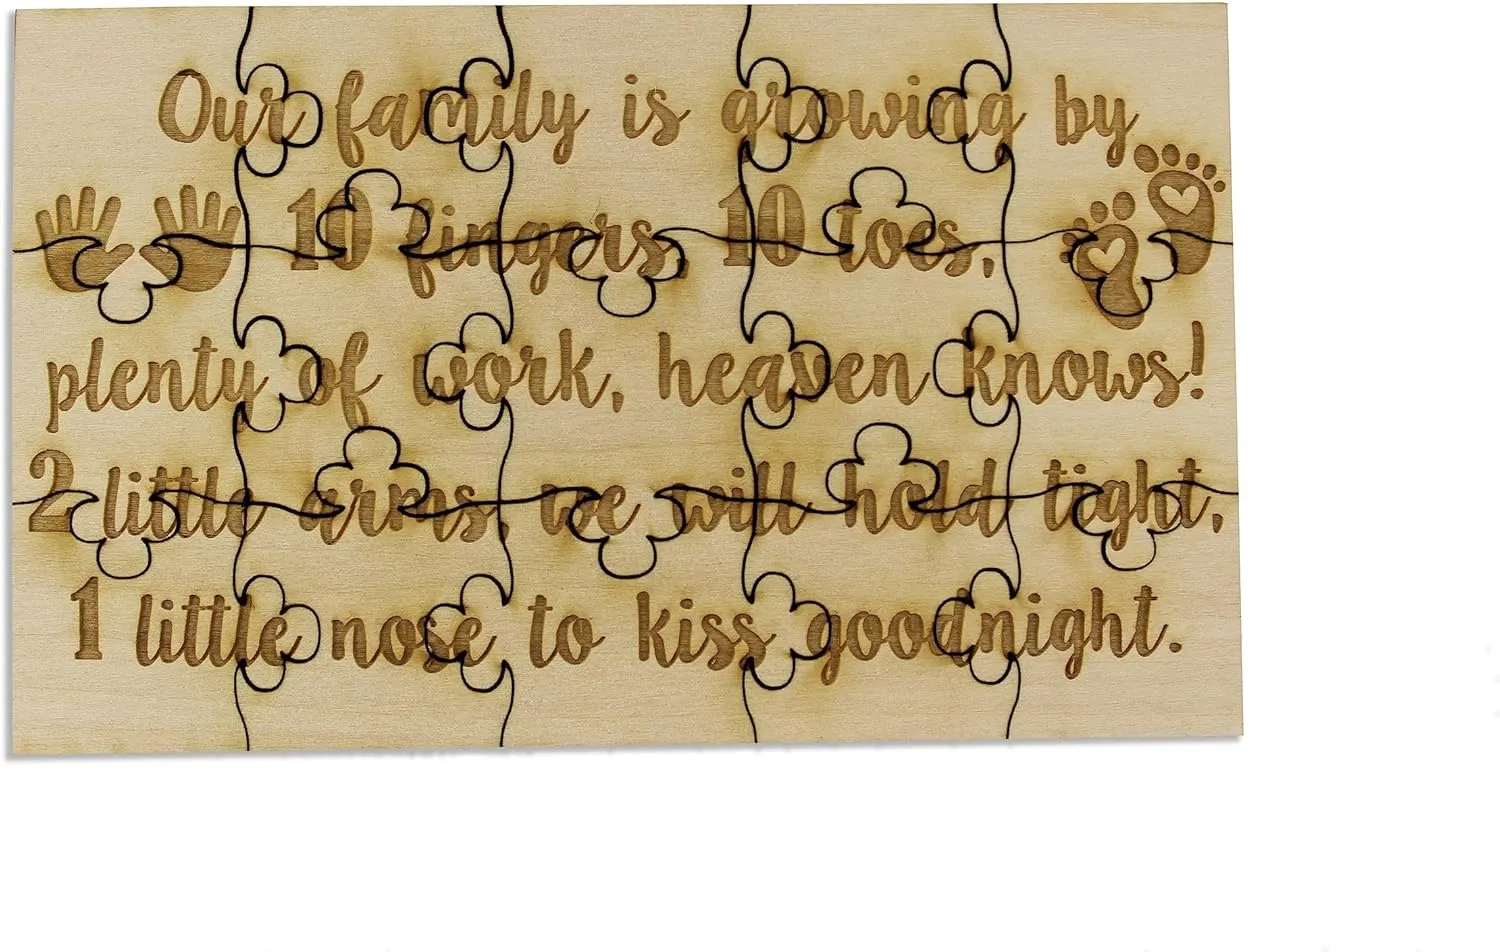 Our family is growing by
10 fingers, 10 toes,
plenty of work, heaven knows!
2 little arms, we will hold tight,
1 little nose to kiss goodnight.